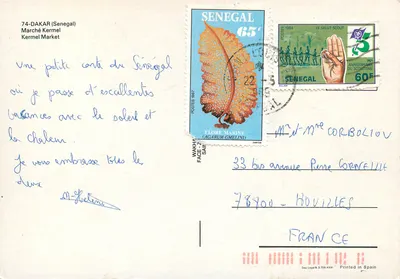 74-DAKAR (Senegal)
Marché Kermel
Kermel Market
Une petite carte du Sénégal
où je passe d'excellentes
vacances avec le soleil et
la chaleur.
Je vous embrasse tous les
deux
SENEGAL
65F
ALGUE MARINE
(AGARUM GMELINI)
SENEGAL
60F
22
M. et Mme CORBOLIOU
33 bis avenue Pierre CORNEILLE
78400 - HOUILLES
FRANCE
Printed in Spain